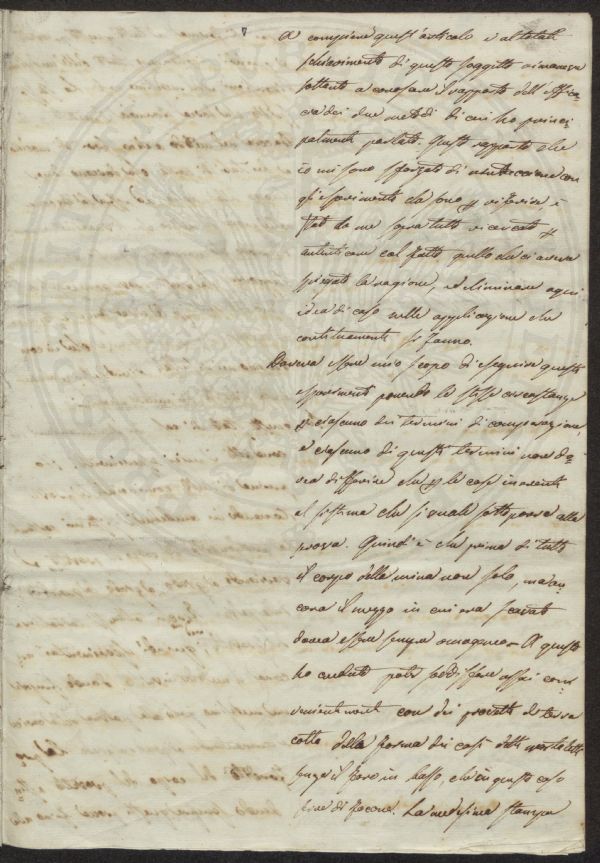 A compiere quest'articolo e al totale
schiarimento di questo soggetto rimaneva
soltanto a conoscere il rapporto dell'effica-
cia dei due metodi di cui ho princi-
palmente parlato. Questo rapporto che
io mi sono sforzato di
gli esperimenti da
stato da me sopra tutto ricercato p
autenticare col fatto quello che ci aveva
spiegato la ragione, ed eliminare ogni
idea di caso nelle applicazione che
continuamente si fanno.
Doveva essere mio scopo di eseguire questi
esperimenti ponendo le stesse circostanze
p ciascuno dei termini di comparazione,
e ciascuno di questi termini non do-
vea differire che p le cose inerenti
al sistema che si vuole sottoporre alla
prova. Quindi è che prima di tutto
il corpo della mina non solo, ma an-
cora il mezzo in cui era scavato
dovea essere sempre omogeneo - A questo
ho creduto poter soddisfare assai con-
venientemente con dei provetti di terra
cotta della forma dei così detti
senza il foro in basso, che in questo caso
La medesima stampa